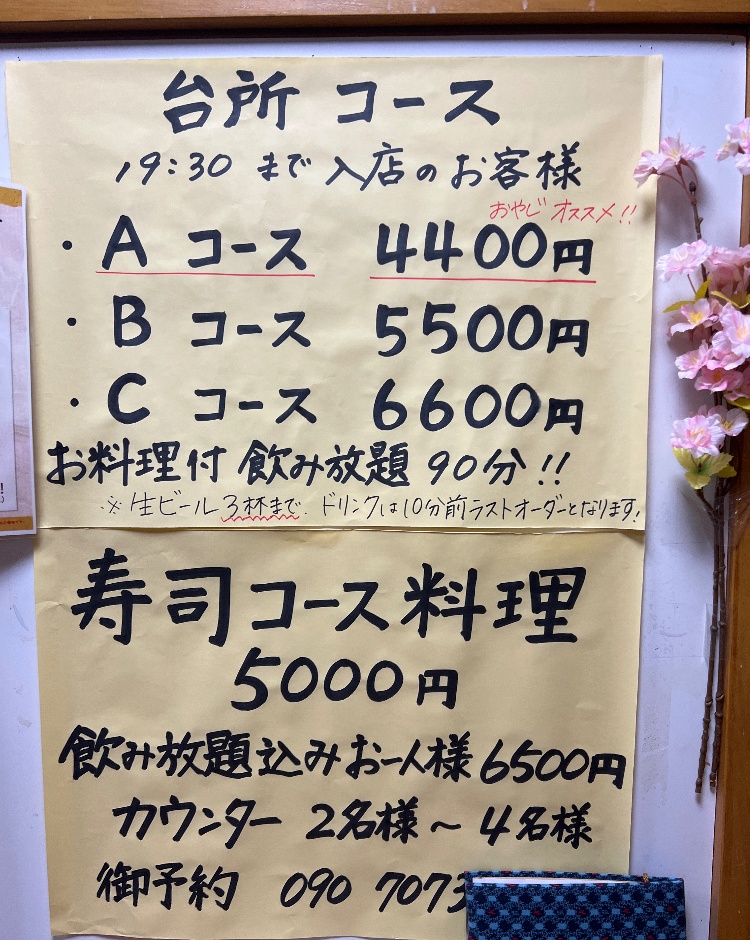 台所 コース
19:30 まで 入店のお客様
おやじ オススメ!!
・A コース 4400円
・B コース 5500円
・C コース 6600円
お料理付 飲み放題 90分!!
※生ビール3杯まで. ドリンクは10分前ラストオーダーとなります!
寿司コース料理
5000円
飲み放題込みお一人様6500円
カウンター 2名様～4名様
御予約 090 7073